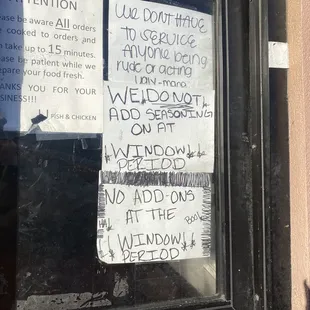 ATTENTION
Please be aware All orders
are cooked to orders and
can take up to 15 minutes.
Please be patient while we
prepare your food fresh.
THANKS YOU FOR YOUR
BUSINESS!!!
FISH & CHICKEN
WE DON'T HAVE
TO SERVICE
ANYONE BEING
rude or acting
WE DO NOT
ADD SEASONING
ON AT
WINDOW
PERIOD
NO ADD-ONS
AT THE
WINDOW
PERIOD